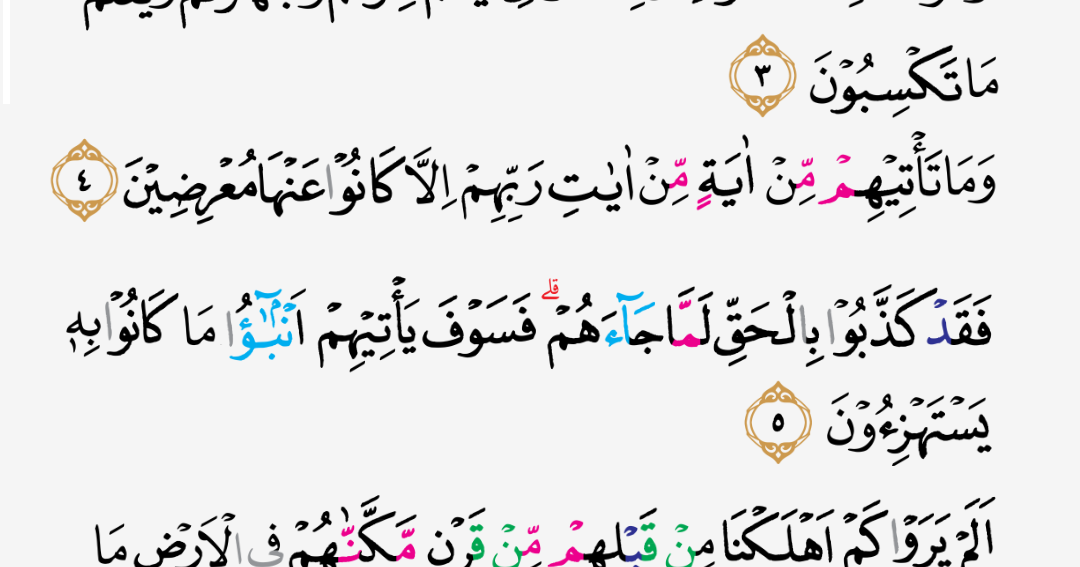 مَا تَكْسِبُوْنَ ٣
وَمَا تَأْتِيْهِمْ مِّنْ اٰيَةٍ مِّنْ اٰيٰتِ رَبِّهِمْ اِلَّا كَانُوْا عَنْهَا مُعْرِضِيْنَ ٤
فَقَدْ كَذَّبُوْا بِالْحَقِّ لَمَّا جَاۤءَهُمْۗ فَسَوْفَ يَأْتِيْهِمْ اَنْۢبـٰۤؤُا مَا كَانُوْا بِهٖ
يَسْتَهْزِءُوْنَ ٥
اَلَمْ يَرَوْا كَمْ اَهْلَكْنَا مِنْ قَبْلِهِمْ مِّنْ قَرْنٍ مَّكَّنّٰهُمْ فِى الْاَرْضِ مَا